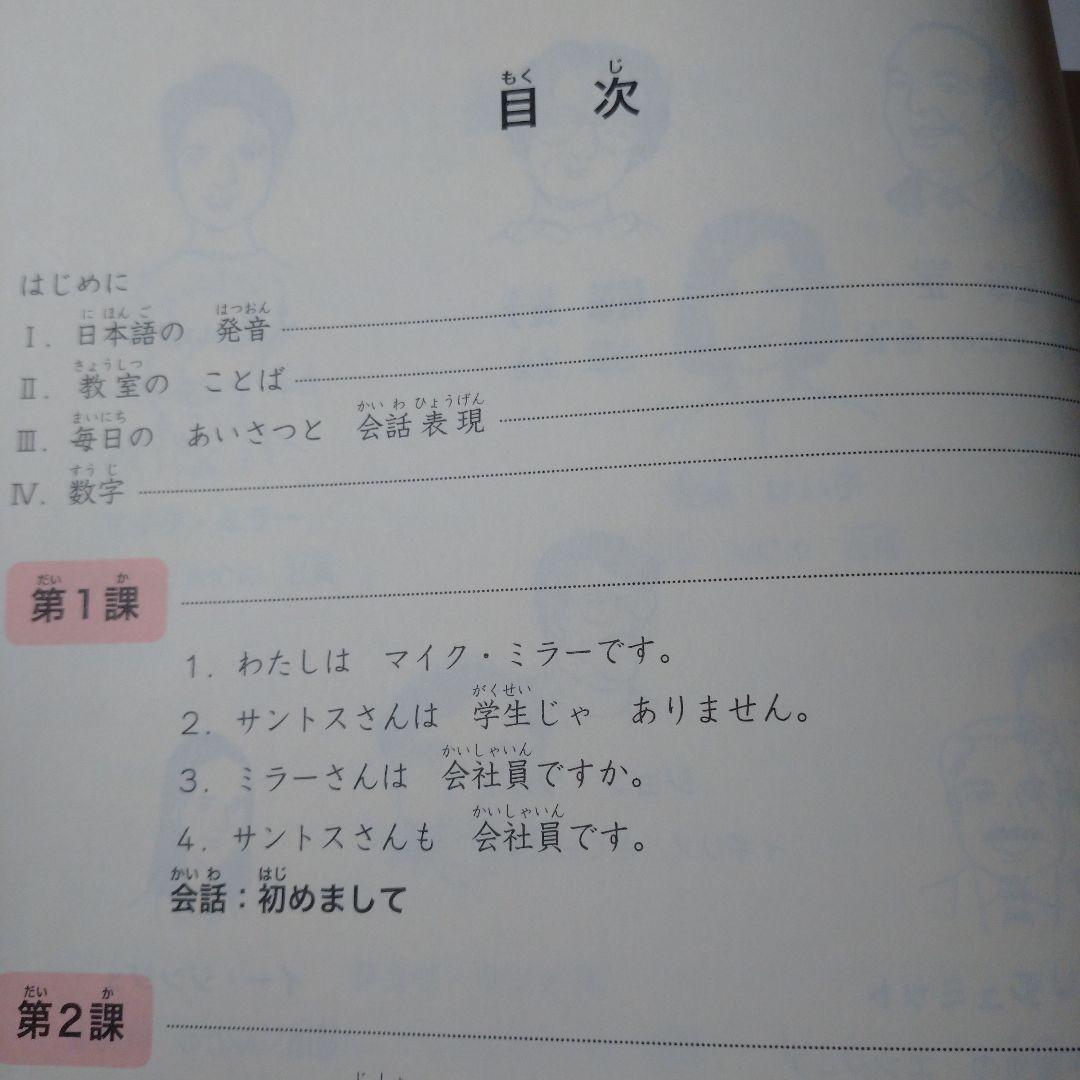 目次
はじめに
Ⅰ. 日本語の 発音
Ⅱ. 教室の ことば
Ⅲ. 毎日の あいさつと 会話表現
Ⅳ. 数字
第1課
1. わたしは マイク・ミラーです。
2. サントスさんは 学生じゃ ありません。
3. ミラーさんは 会社員ですか。
4. サントスさんも 会社員です。
会話：初めまして
第2課